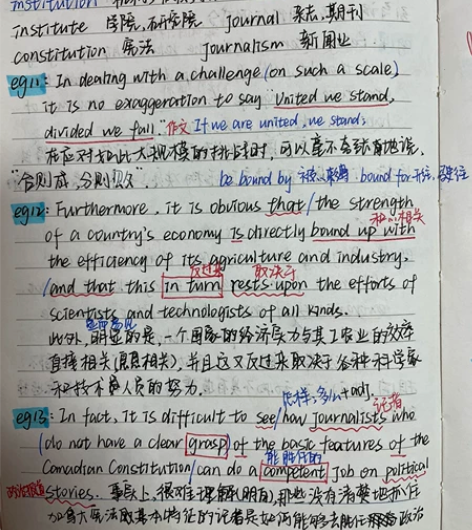 institution
institute 学院,研究院 journal 杂志,期刊
constitution 宪法 journalism 新闻业
eg11: In dealing with a challenge (on such a scale),
it is no exaggeration to say "United we stand,
divided we fall." 作文 If we are united, we stand,
在应对如此大规模的挑战时,可以毫不夸张地说,
"合则成,分则败". be bound by bound for 前往
eg12: Furthermore, it is obvious that / the strength
和…相关
of a country's economy is directly bound up with
the efficiency of its agriculture and industry,
反过来 取决于
/and that this in turn rests upon the efforts of
scientists and technologists of all kinds.
此外,明显的是,一个国家的经济实力与其工农业的效率
直接相关(息息相关),并且这又反过来取决于各种科学家
和技术人员的努力.
怎样,多么+adj.
eg13: In fact, it is difficult to see / how journalists who
记者
/do not have a clear grasp of the basic features of the
能胜任的
Canadian Constitution / can do a competent job on political
stories. 事实上,很难理解(明白),那些没有清楚地
加拿大宪法的基本特征的记者是如何能够去胜任政治